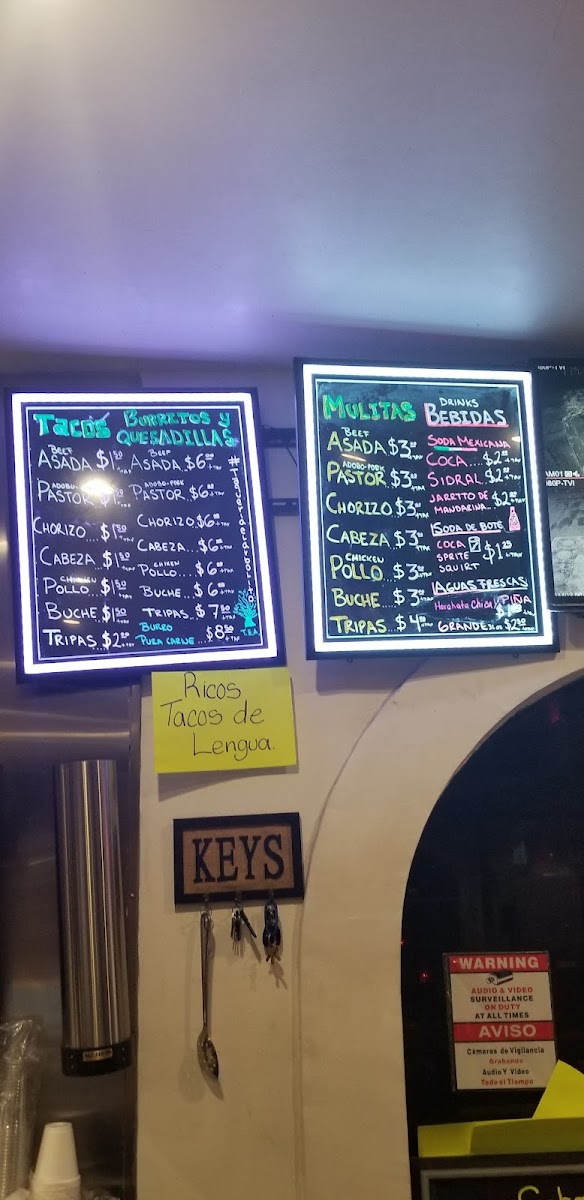 Tacos
BEEF
ASADA $1.50 +TAX
ADOBO-PORK
PASTOR
CHORIZO... $1.50 +TAX
CABEZA... $1.50
CHICKEN
POLLO... $1.50
BUCHE... $1.50
TRIPAS... $2
BURRITOS Y
QUESADILLAS
BEEF
ASADA.. $6 +TAX
ADOBO-PORK
PASTOR... $6 +TAX
CHORIZO $6 +TAX
CABEZA... $6 +TAX
CHICKEN
POLLO.... $6 +TAX
BUCHE... $6 +TAX
TRIPAS... $7.50 +TAX
BURRO
PURA CARNE ... $8.50 +TAX
T.E.A.
MULITAS
BEEF
ASADA $3 +TAX
ADOBO-PORK
PASTOR.. $3 +TAX
CHORIZO $3 +TAX
CABEZA.. $3 +TAX
CHICKEN
POLLO... $3 +TAX
BUCHE... $3 +TAX
TRIPAS... $4 +TAX
DRINKS
BEBIDAS
SODA MEXICANA
COCA... $2 +TAX
SIDRAL $2 +TAX
JARRITO DE
MANDARINA.. $2 +TAX
SODA DE BOTE
COCA
SPRITE $1.25 +TAX
SQUIRT
AGUAS FRESCAS
Horchata Chica PIÑA
GRANDE $2.50 +TAX
Ricos
Tacos de
Lengua.
KEYS
WARNING
AUDIO & VIDEO
SURVEILLANCE
ON DUTY
AT ALL TIMES
AVISO
Camaras de Vigilancia
Grabando
Audio Y Video
Todo el Tiempo